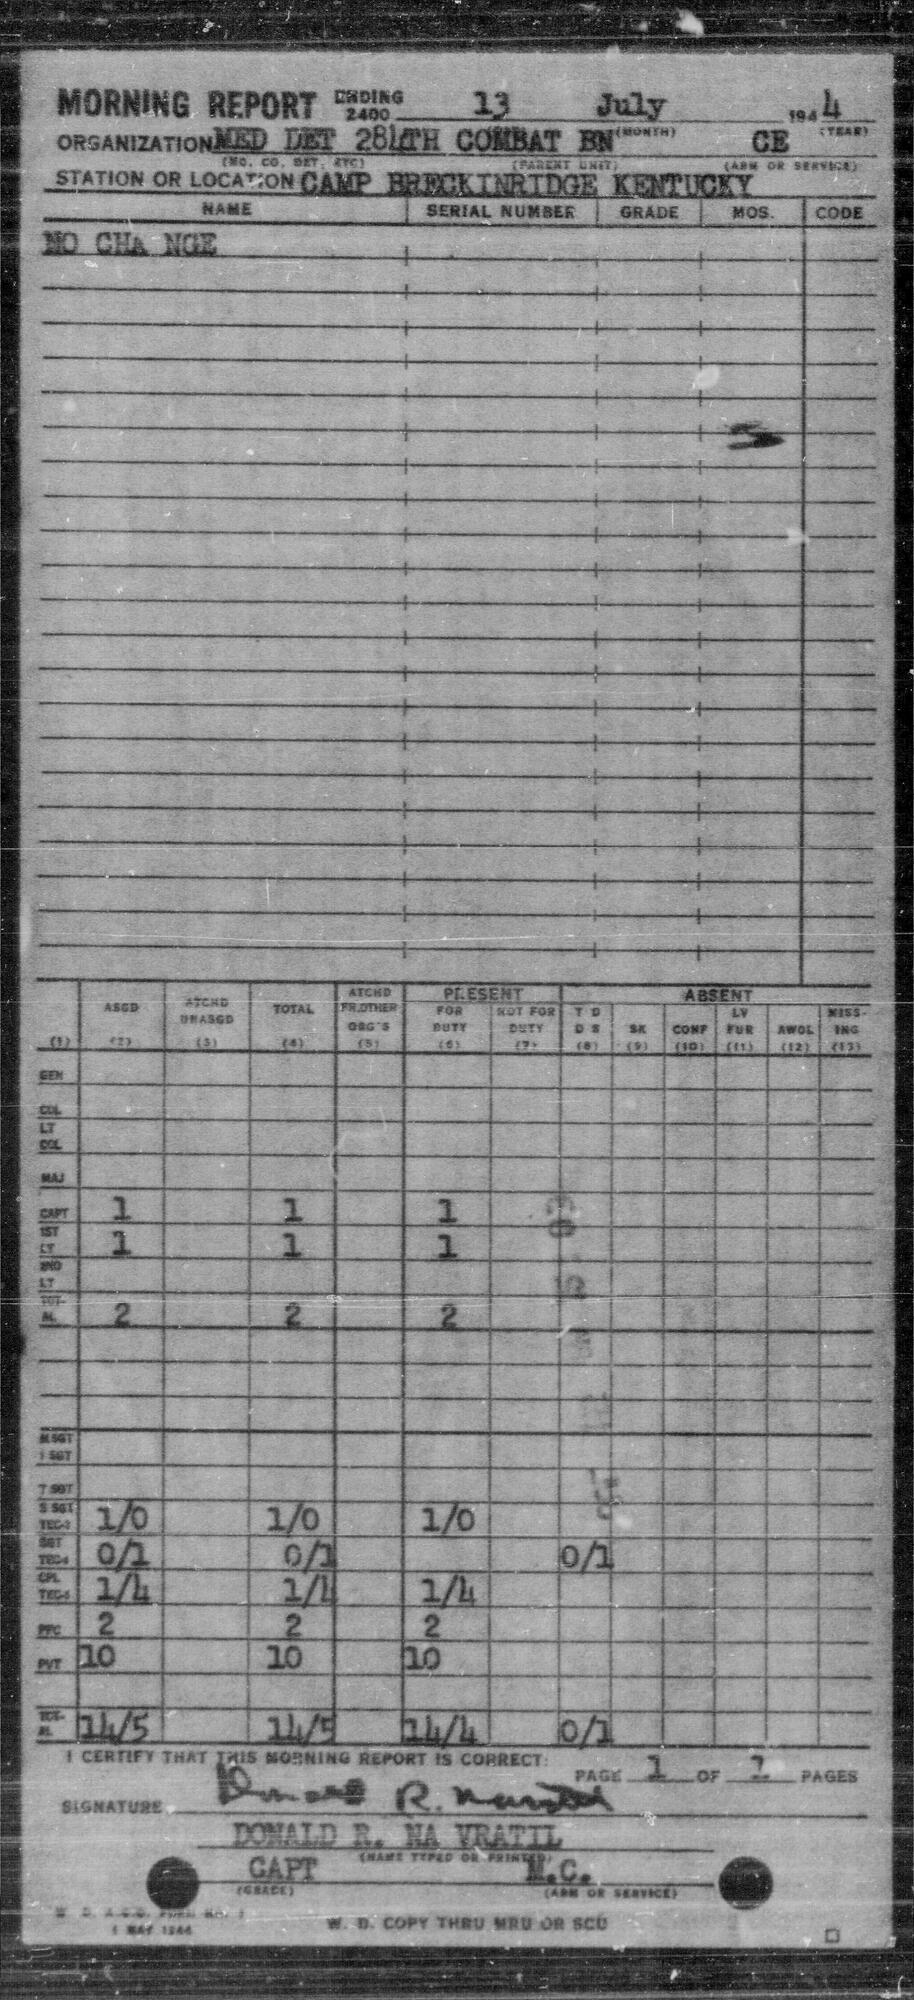 MORNING REPORT ENDING 2400 13 July 1944
ORGANIZATION MED DET 284TH COMBAT BN (MONTH) CE (YEAR)
(HQ. CO. DET. ETC) (PARENT UNIT) (ARM OR SERVICE)
STATION OR LOCATION CAMP BRECKINRIDGE KENTUCKY
NAME SERIAL NUMBER GRADE MOS. CODE
NO CHA NGE
ASGD ATCHD UNASGD TOTAL ATCHD FR.OTHER ORG'S PRESENT FOR DUTY NOT FOR DUTY ABSENT T D D S SK CONF LV FUR AWOL MISS-ING
(1) (2) (3) (4) (5) (6) (7) (8) (9) (10) (11) (12) (13)
GEN
COL
LT COL
MAJ
CAPT 1 1 1
1ST LT 1 1 1
2ND LT
TOT-AL 2 2 2
M SGT
1 SGT
T SGT
S SGT TEC-3 1/0 1/0 1/0
SGT TEC-4 0/1 0/1 0/1
CPL TEC-5 1/4 1/4 1/4
PFC 2 2 2
PVT 10 10 10
TOT-AL 14/5 14/5 14/4 0/1
I CERTIFY THAT THIS MORNING REPORT IS CORRECT:
PAGE 1 OF 1 PAGES
SIGNATURE Donald R. Navratil
DONALD R. NA VRATIL
(NAME TYPED OR PRINTED)
CAPT M.C.
(GRADE) (ARM OR SERVICE)
W. D. A.G.O. FORM NO. 1
1 MAY 1944
W. D. COPY THRU MRU OR SCU